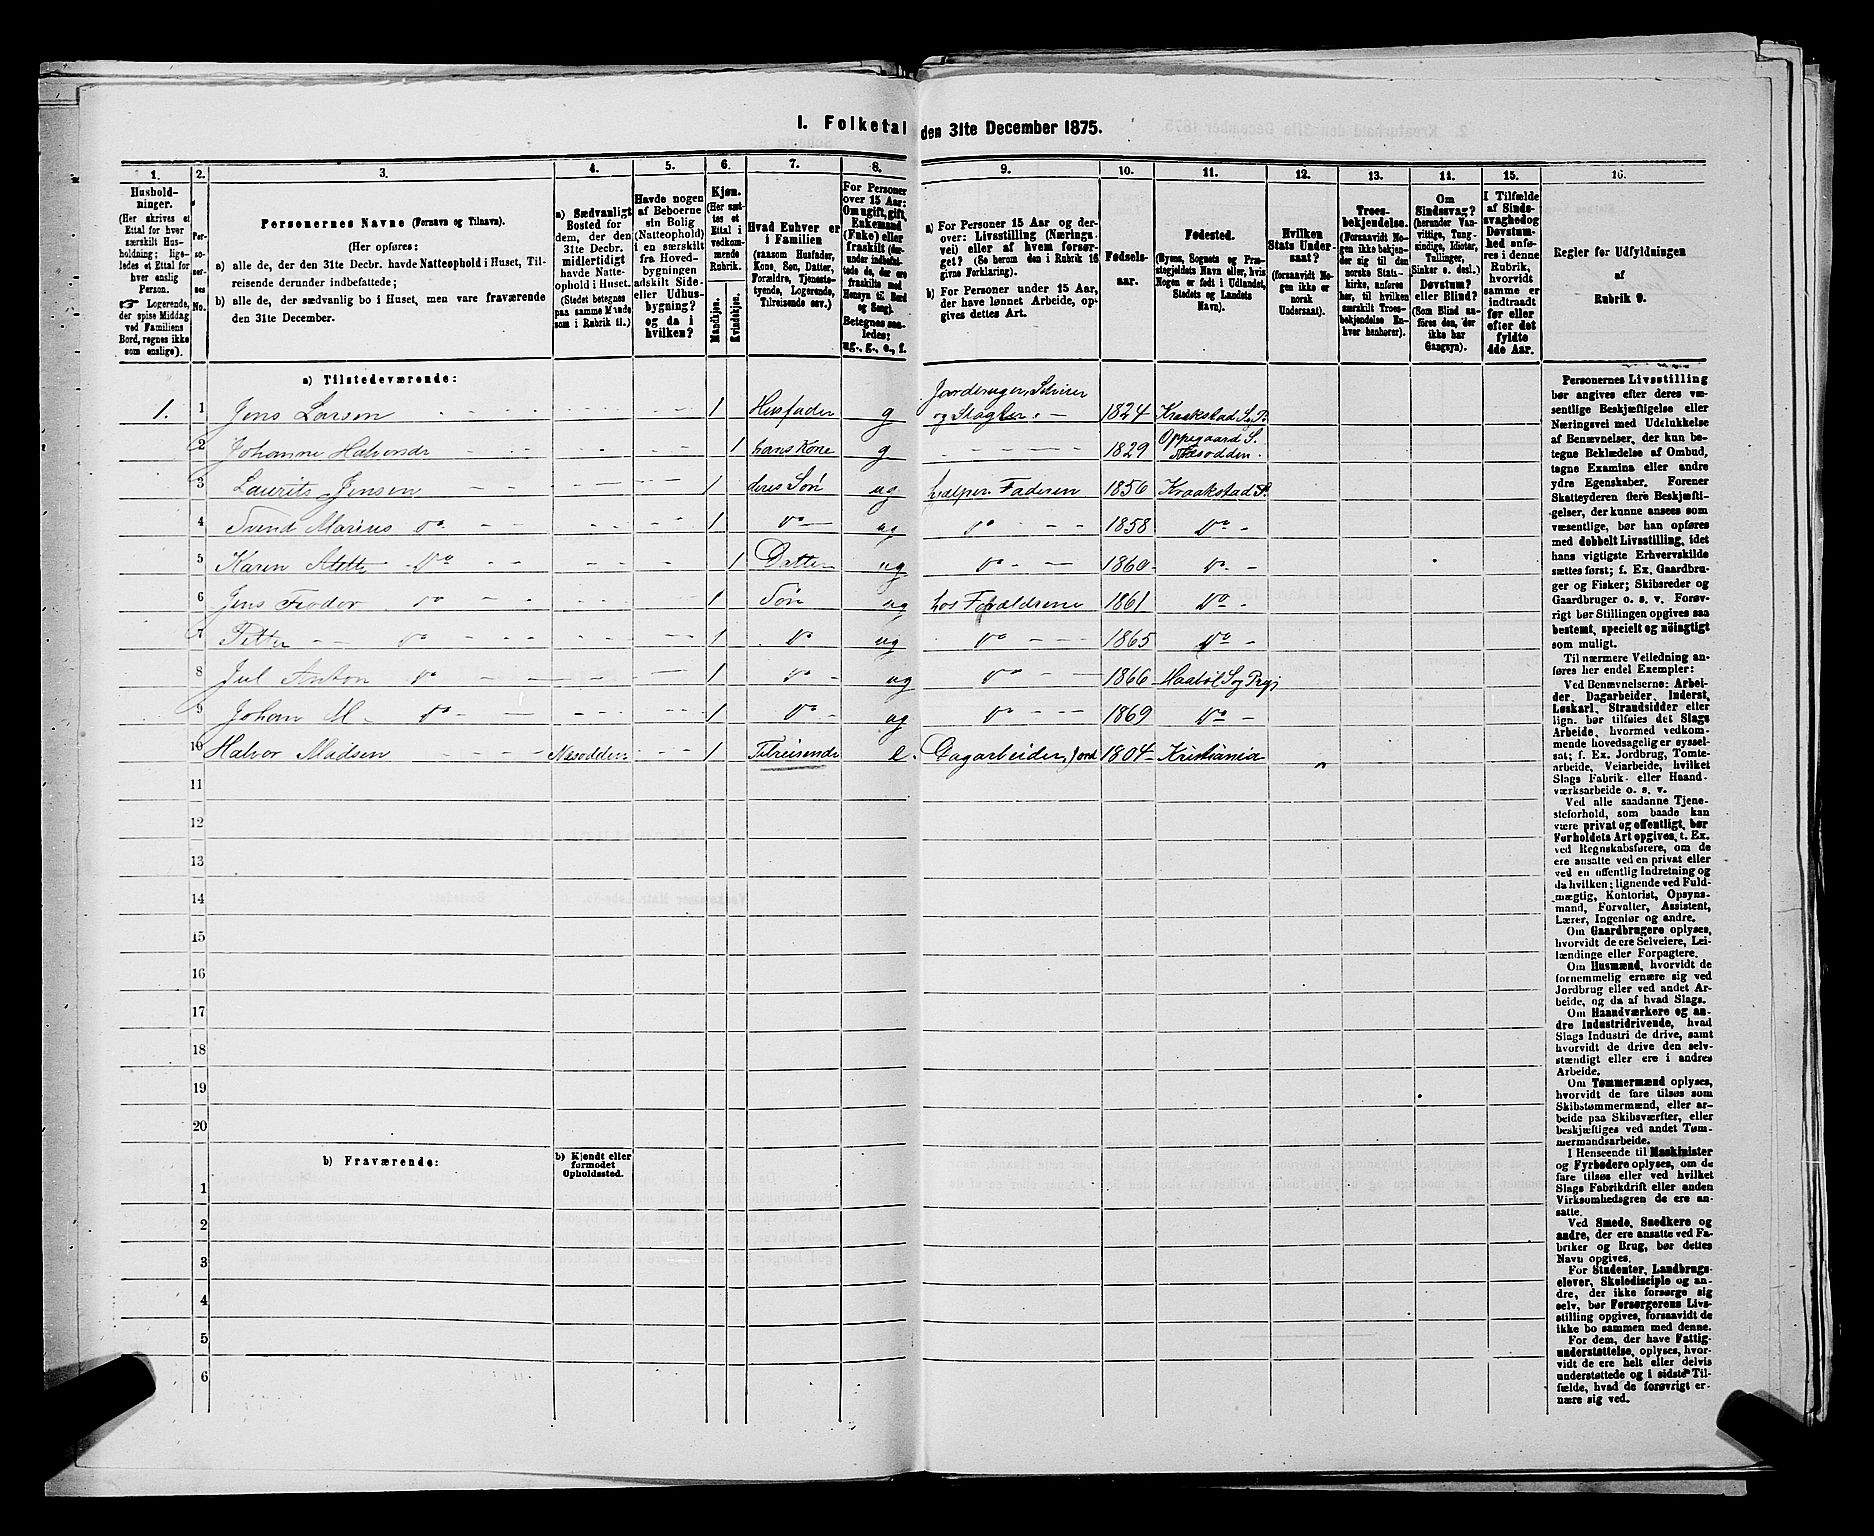 I. Folketal den 31te December 1875.
1. 2. 3. 4. 5. 6. 7. 8. 9. 10. 11. 12. 13. 14. 15. 16.
Hushold-
ninger.
(Her skrives et
Ettal for hver
særskilt Hus-
holdning; lige-
ledes et Ettal for
hver enslig
Person.
☛ Logerende,
der spise Middag
ved Familiens
Bord, regnes ikke
som enslige).
Per-
soner-
nes
No.
Personernes Navne (Fornavn og Tilnavn).
(Her opføres:
a) alle de, der den 31te Decbr. havde Natteophold i Huset, Til-
reisende derunder indbefattede;
b) alle de, der sædvanlig bo i Huset, men vare fraværende
den 31te December.
a) Sædvanligt
Bosted for
dem, der den
31te Decbr.
midlertidigt
havde Natte-
ophold i Huset.
(Stedet betegnes
paa samme Maade
som i Rubrik 11.)
Havde nogen
af Beboerne
sin Bolig
(Natteophold)
i en særskilt
fra Hoved-
bygningen
adskilt Side-
eller Udhus-
bygning?
og da i
hvilken?
Kjøn.
(Her sæt-
tes et
Ettal i
vedkom-
mende
Rubrik.
Mandkjøn.
Kvindekjøn.
Hvad Enhver er
i Familien
(saasom Husfader,
Kone, Søn, Datter,
Forældre, Tjeneste-
tyende, Logerende,
Tilreisende osv.)
For Personer
over 15 Aar:
Om ugift, gift,
Enkemand
(Enke) eller
fraskilt (der-
under indbefat-
tede de, der ere
fraskilte med
Hensyn til Bord
og Seng).
Betegnes saa-
ledes:
ug., g., e., f.
a) For Personer 15 Aar og der-
over: Livsstilling (Nærings-
vei) eller af hvem forsør-
get? (Se herom den i Rubrik 16
givne Forklaring).
b) For Personer under 15 Aar,
der have lønnet Arbeide, op-
gives dettes Art.
Fødsels-
aar.
Fødested.
(Byens, Sognets og Præ-
stegjeldets Navn eller, hvis
Nogen er født i Udlandet,
Stedets og Landets
Navn).
Hvilken
Stats Under-
saat?
(forsaavidt No-
gen ikke er
norsk
Undersaat).
Troes-
bekjendelse.
(Forsaavidt No-
gen ikke bekjen-
der sig til den
norske Stats-
kirke, anføres
her, til hvilken
særskilt Troes-
bekjendelse En-
hver henhører).
Om
Sindssvag?
(herunder Van-
vittige, Tung-
sindige, Idioter,
Tullinger,
Sinker o. desl.)
Døvstum?
eller Blind?
(Som Blind an-
føres den, der
ikke har
Gangsyn).
I Tilfælde
af Sinds-
svaghed og
Døvstum-
hed anfø-
res i denne
Rubrik,
hvorvidt
samme er
indtraadt
før eller
efter det
fyldte
4de Aar.
Regler før Udfyldningen
af
Rubrik 9.
a) Tilstedeværende:
1. 1 Jens Larsen 1 Husfader g Jordbruger, og 1824 Kraakstad S. P.
2 Johanne Halvorsdr 1 hans Kone g 1829 Oppegaard S. Næsodden.
3 Laurits Jensen 1 deres Søn ug hjælper Faderen 1856 Kraakstad S.
4 Svend Marius do 1 do ug do 1858 do
5 Karen do 1 Datter ug do 1860 do
6 Jens do 1 Søn ug hos Forældrene 1861 do
7 Petter do 1 do ug do 1865 do
8 Jul Anton do 1 do ug do 1866
9 Johan M do 1 do ug do 1869 do
10 Halvor Madsen Næsodden 1 Tilreisende e. Dagarbeider, Jord 1804 Kristiania
11
12
13
14
15
16
17
18
19
20
b) Fraværende:
b) Kjendt eller
formodet
Opholdssted.
1
2
3
4
5
6
Personernes Livsstilling
bør angives efter deres væ-
sentlige Beskjæftigelse eller
Næringsvei med Udelukkelse
af Benævnelser, der kun be-
tegne Beklædelse af Ombud,
tagne Examina eller andre
ydre Egenskaber. Forener
Skatteyderen flere Beskjæfti-
gelser, der kunne ansees som
væsentlige, bør han opføres
med dobbelt Livsstilling, idet
hans vigtigste Erhvervskilde
sættes først; f. Ex. Gaardbru-
ger og Fisker; Skibsreder og
Gaardbruger o. s. v. Forøv-
rigt bør Stillingen opgives saa
bestemt, specielt og nöiagtigt
som muligt.
Til nærmere Veiledning an-
føres her endel Exempler:
Ved Benævnelserne: Arbei-
der, Dagarbeider, Inderst,
Løskarl, Strandsidder eller
lign. bør tilføies det Slags
Arbeide, hvormed vedkom-
mende hovedsagelig er syssel-
sat; f. Ex. Jordbrug, Tomte-
arbeide, Veiarbeide, hvilket
Slags Fabrik- eller Haand-
værksarbeide o. s. v.
Ved alle saadanne Tjene-
steforhold, som baade kan
være privat og offentligt, bør
Forholdets Art opgives, t. Ex.
ved Regnskabsførere, om de
ere ansatte ved en privat eller
ved en offentlig Indretning og
da hvilken; lignende ved Fuld-
mægtig, Kontorist, Opsyns-
mand, Forvalter, Assistent,
Lærer, Ingeniør og andre.
Om Gaardbrugere oplyses,
hvorvidt de ere Selveiere, Lei-
lændinge eller Forpagtere.
Om Husmænd, hvorvidt de
fornemmelig ernære sig ved
Jordbrug eller ved andet Ar-
beide, og da af hvad Slags.
Om Haandværkere og an-
dre Industridrivende, hvad
Slags Industri de drive, samt
hvorvidt de drive den selv-
stændigt eller ere i andres
Arbeide.
Om Tømmermænd oplyses,
hvorvidt de fare tilsøs som
Skibstømmermænd, eller ar-
beide paa Skibsværfter, eller
beskjæftiges ved andet Tøm-
mermandsarbeide.
I Henseende til Maskinister
og Fyrbødere oplyses, om de
fare tilsøs eller ved hvilket
Slags Fabrikdrift eller anden
Virksomhedsgren de ere an-
satte.
Ved Smede, Snedkere og
andre, der ere ansatte ved Fa-
briker og Brug, bør dettes
Navn opgives.
For Studenter, Landbrugs-
elever, Skoledisciple og an-
dre, der ikke forsørge sig
selv, bør Forsørgerens Livs-
stilling opgives, forsaavidt de
ikke bo sammen med denne.
For dem, der have Fattig-
understøttelse, oplyses, hvor-
vidt de ere helt eller delvis
understøttede og i sidste Til-
fælde, hvad de forøvrigt er-
nære sig ved.